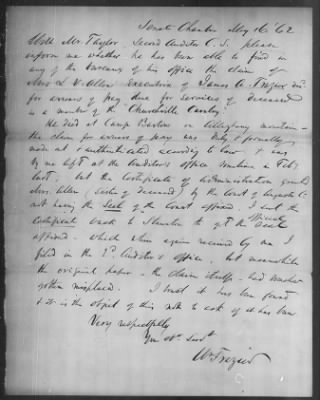 Senate Chamber May 16 '62
Will Mr. Taylor, Second Auditor C. S. please
inform me whether he has been able to find in
any of the bureaus of his office the claim of
Mrs L. V. Allen Executrix of James A. Frazier dec.
for arrears of pay due for services of deceased
as a member of the Churchville Cavalry.
He died at Camp Bartow in Alleghany mountain -
the claim for arrears of pay was duly & formally
made out & authenticated according to law & was
by me left at the Auditor's office sometime in Feby
last; but the Certificate of administration granted
Mrs. Allen by the Court of Augusta Co
not having the Seal of the Court affixed. I sent the
certificate back to Staunton to get the official Seal
affixed - which when again received by me I
filed in the 2d Auditor's office, but meanwhile
the original paper - the claim itself - had somehow
gotten misplaced. I trust it has been found
& it is the object of this note to ask if it has been
Very respectfully
You Ob. Servt
Wm Frazier